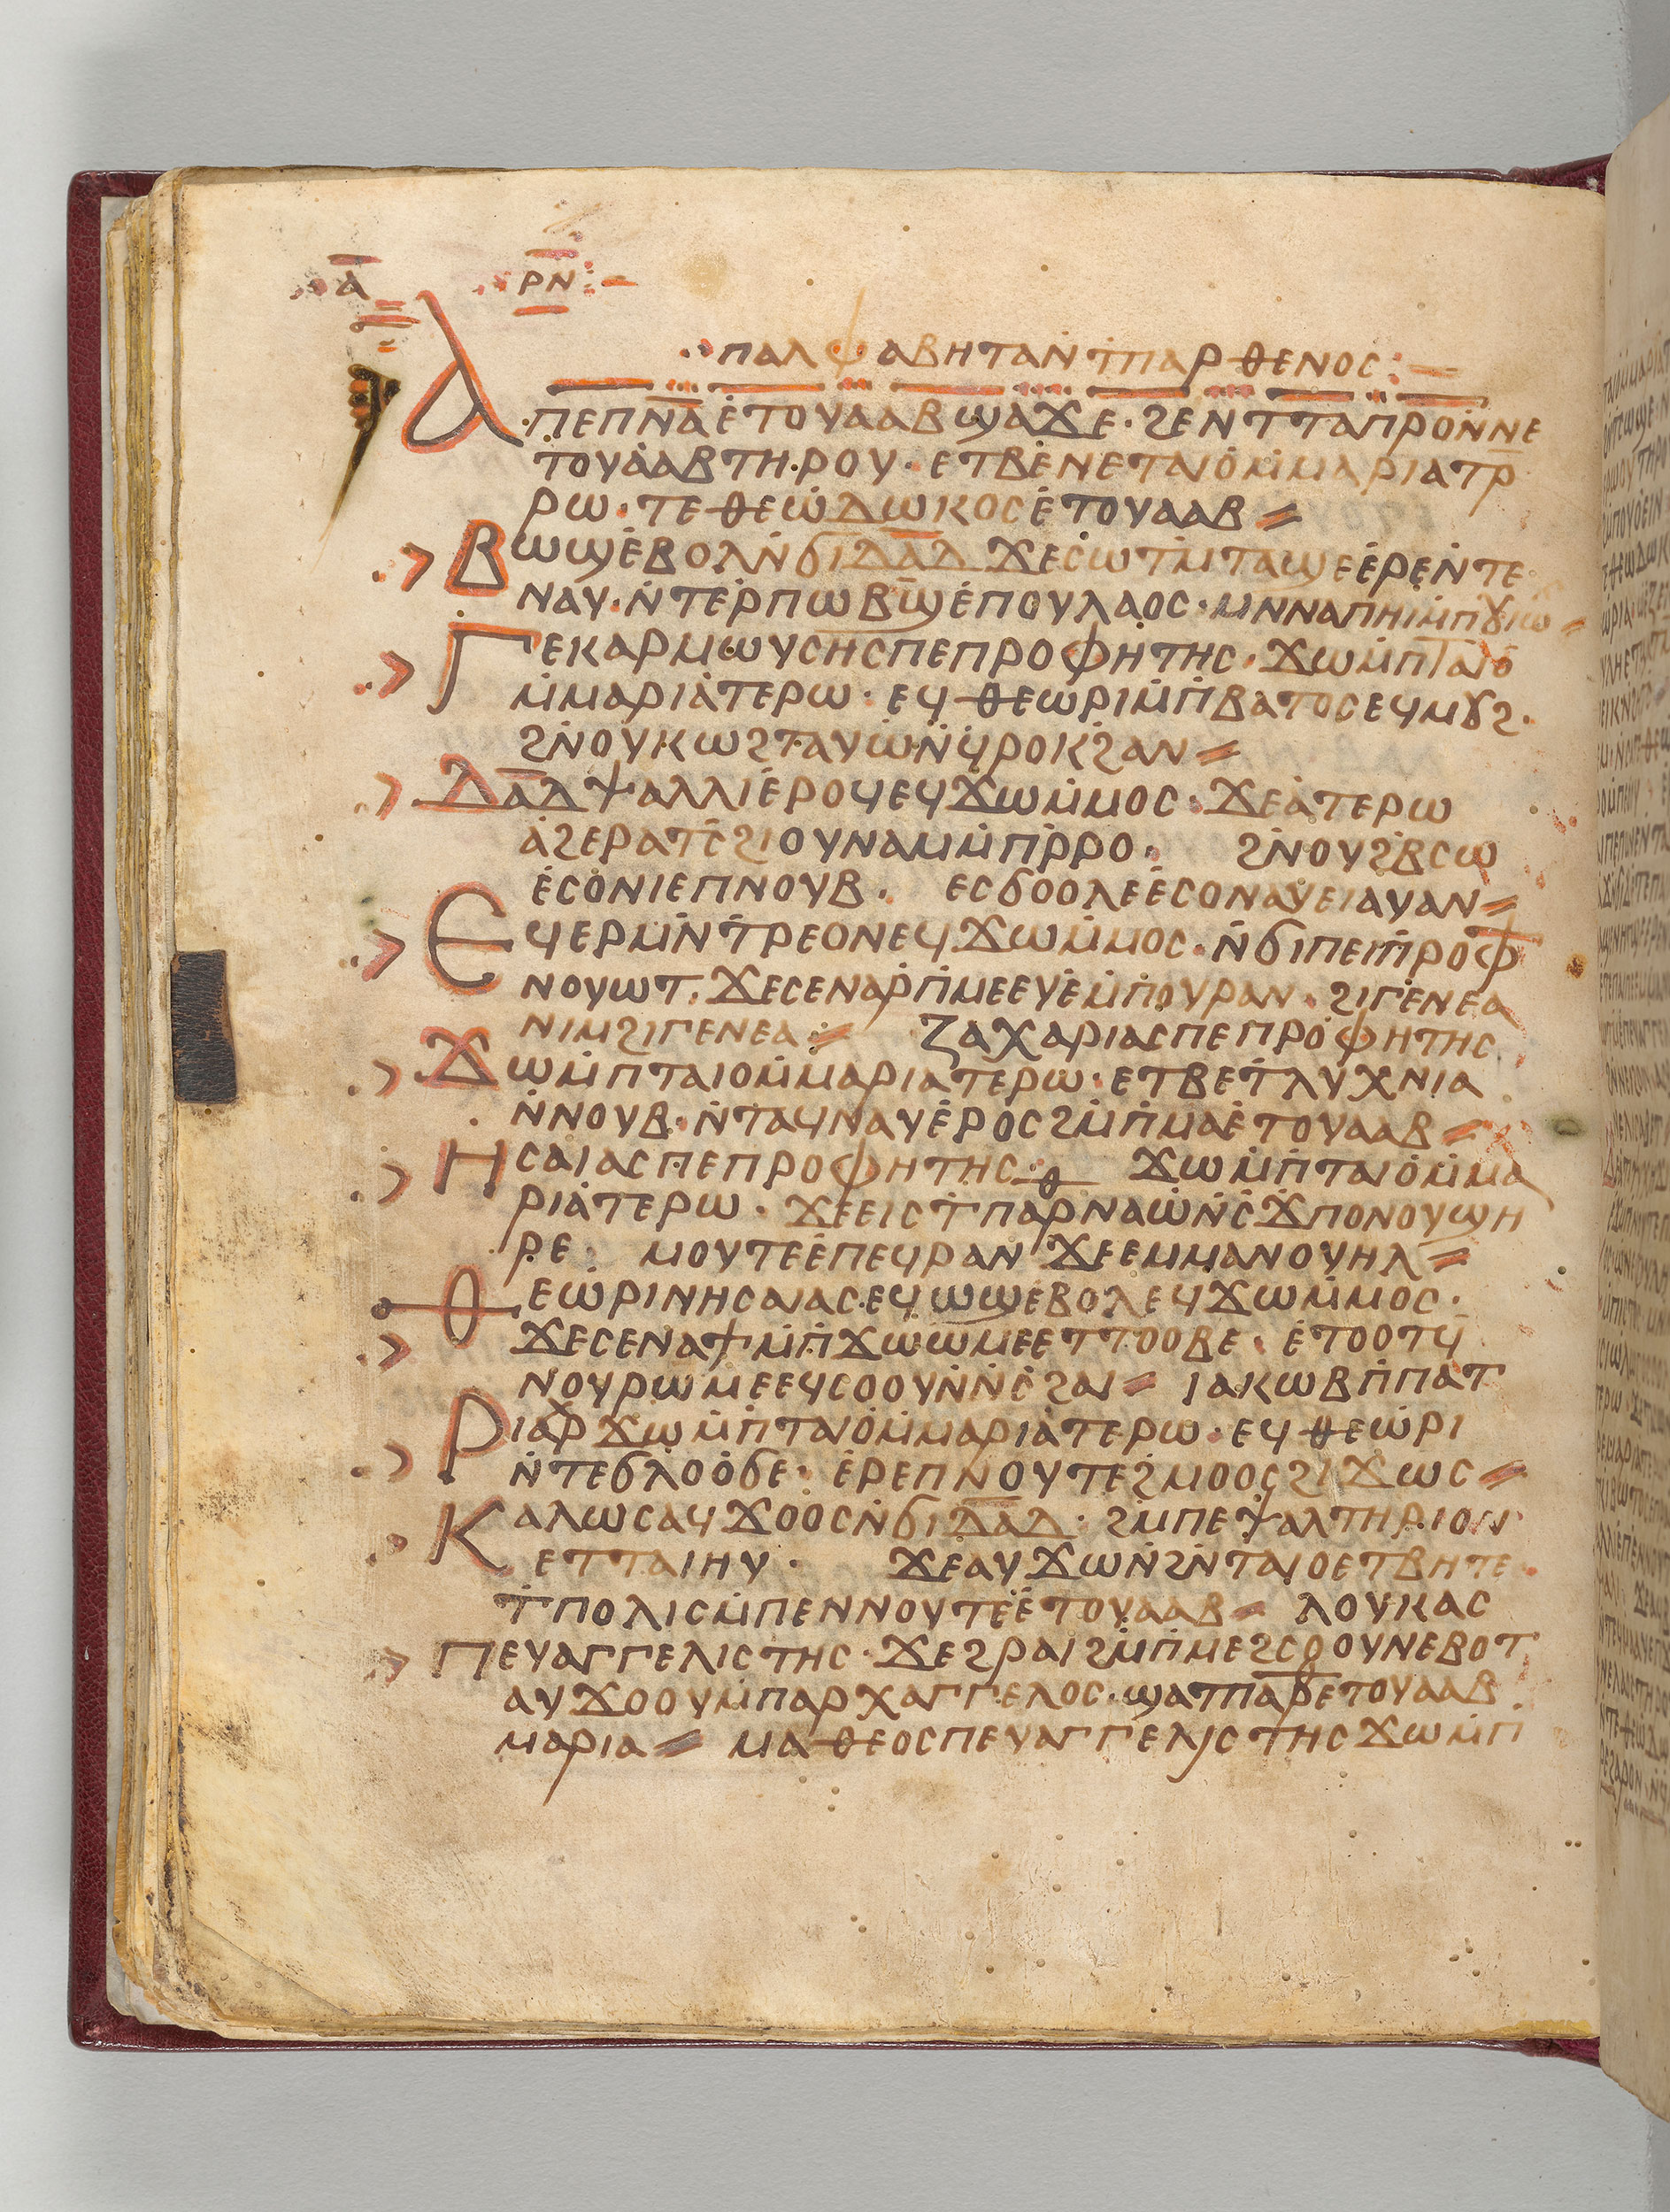 ⲁ̅ ⲣ̅ⲛ̅
ⲡⲁⲗⲫⲁⲃⲏⲧⲁⲛ̇ϯⲡⲁⲣⲑⲉⲛⲟⲥ:
Ⲁⲡⲉⲡⲛ̅ⲁ̅ⲉ̇ⲧⲟⲩⲁⲁⲃϣⲁϫⲉ· ϩⲉⲛⲧⲧⲁⲡⲣⲟⲛ̇ⲛⲉ
ⲧⲟⲩⲁ̇ⲁⲃⲧⲏⲣⲟⲩ· ⲉⲧⲃⲉ̇ⲛⲉⲧⲁⲓⲟ̇ⲙ̇ⲙⲁⲣⲓⲁⲧⲣ̅
ⲣⲱ· ⲧⲉⲑⲉⲱ̇ⲇⲱⲕⲟⲥⲉ̇ⲧⲟⲩⲁⲁⲃ⸗
Ⲃⲱϣⲉ̇ⲃⲟⲗⲛ̇ϭⲓⲇ̅ⲁ̅ⲇ̅ ϫⲉⲥⲱⲧⲙ̇ⲧⲁϣⲉⲉ̇ⲣⲉⲛ̇ⲧⲉ
ⲛⲁⲩ· ⲛ̇ⲧⲉⲣ̇ⲡⲱⲃϣ̅ⲉ̇ⲡⲟⲩⲗⲁⲟⲥ· ⲙⲛⲛⲁⲡⲏⲓⲙ̇ⲡⲟⲩⲓⲱ⸗
Ⲅⲉⲕⲁⲣⲙⲱⲩⲥⲏⲥⲡⲉⲡⲣⲟⲫⲏⲧⲏⲥ· ϫⲱⲙ̇ⲡⲧⲁⲓⲟ̇
ⲙ̇ⲙⲁⲣⲓⲁ̇ⲧⲉⲣⲱ· ⲉϥⲑⲉⲱ̇ⲣⲓⲙ̇ⲡ̇ⲃⲁⲧⲟⲥⲉϥⲙⲟⲩϩ·
ϩⲛ̇ⲟⲩⲕⲱϩⲧ·ⲁⲩⲱ̇ⲛ̇ϥ̇ⲣⲟⲕϩ̇ⲁⲛ⸗
Ⲇ̅ⲁ̅ⲇ̅ⲯⲁⲗⲗⲓⲉ̇ⲣⲟϥⲉϥϫⲱⲙ̇ⲙⲟⲥ· ϫⲉⲁ̇ⲧⲉⲣⲱ
ⲁ̇ϩⲉⲣⲁⲧⲥ̇ϩⲓⲟⲩⲛⲁⲙⲙ̇ⲡⲣ̇ⲣⲟ· ϩⲛ̇ⲟⲩϩⲃ̇ⲥⲱ
ⲉ̇ⲥⲟ̇ⲛⲓⲉⲡⲛⲟⲩⲃ· ⲉⲥϭⲟⲟⲗⲉⲉ̇ⲥⲟⲛⲁⲩⲉⲓⲁⲩⲁⲛ⸗
Ⲉϥⲉⲣⲙⲛ̇ⲧⲣⲉⲟⲛⲉϥϫⲱⲙ̇ⲙⲟⲥ· ⲛ̇ϭⲓⲡⲉⲓ̈ⲡⲣⲟⲫ
ⲛⲟⲩⲱⲧ· ϫⲉⲥⲉⲛⲁⲣ̇ⲡ̇ⲙⲉⲉⲩⲉ̇ⲙ̇ⲡⲟⲩⲣⲁⲛ· ϩⲓⲅⲉ̇ⲛⲉⲁ
ⲛⲓⲙϩⲓⲅⲉⲛⲉⲁ:⸗ ⲍⲁⲭⲁⲣⲓⲁⲥⲡⲉⲡⲣⲟ̇ⲫⲏⲧⲏⲥ
ϫⲱⲙ̇ⲡⲧⲁⲓⲟⲙ̇ⲙⲁⲣⲓⲁⲧⲉⲣⲱ· ⲉⲧⲃⲉϯⲗⲩⲭⲛⲓⲁ
ⲛ̇ⲛⲟⲩⲃ· ⲛ̇ⲧⲁϥⲛⲁⲩⲉ̇ⲣⲟⲥϩⲙ̇ⲡ̇ⲙⲁⲉ̇ⲧⲟⲩⲁⲁⲃ⸗
Ⲏⲥⲁⲓⲁⲥⲡⲉⲡⲣⲟⲫⲏⲧⲏⲥ: ϫⲱⲙ̇ⲡ̇ⲧⲁⲓⲟ̇ⲙ̇ⲙⲁ
ⲣⲓⲁ̇ⲧⲉⲣⲱ· ϫⲉⲉⲓⲥϯⲡⲁⲣⲑⲛⲁⲱ̇ⲛ̇ⲥ̇ϫⲡⲟⲛⲟⲩϣⲏ
ⲣⲉ· ⲙⲟⲩⲧⲉⲉ̇ⲡⲉϥⲣⲁⲛϫⲉⲉⲙⲙⲁⲛⲟⲩⲏⲗ⸗
Ⲑⲉⲱ̇ⲣⲓⲛⲏⲥⲁⲓⲁⲥ·ⲉϥⲱϣⲉⲃⲟⲗⲉϥϫⲱⲙ̇ⲙⲟⲥ·
ϫⲉⲥⲉⲛⲁϯⲙ̇ⲡ̇ϫⲱⲱⲙⲉⲉⲧⲧⲟⲟⲃⲉ· ⲉ̇ⲧⲟⲟⲧϥ̇
ⲛⲟⲩⲣⲱⲙⲉⲉϥⲥⲟⲟⲩⲛ̇ⲛ̇ⲥ̇ϩⲁⲓ⸗ ⲓⲁⲕⲱⲃⲡ̇ⲡⲁⲧ
Ⲣⲓⲁⲣⲭϫⲱⲙ̇ⲡⲧⲁⲓⲟ̇ⲙ̇ⲙⲁⲣⲓⲁ̇ⲧⲉⲣⲱ· ⲉϥⲑⲉⲱ̇ⲣⲓ
ⲛ̇ⲧⲉϭⲗⲟⲟ̇ϭⲉ· ⲉ̇ⲣⲉⲡⲛⲟⲩⲧⲉϩ̇ⲙⲟⲟⲥϩⲓϫⲱⲥ⸗
Ⲕⲁⲗⲱⲥⲁϥϫⲟⲟⲥⲛ̇ϭⲓⲇ̅ⲁ̅ⲇ̅· ϩⲙ̇ⲡⲉⲯⲁⲗⲧⲏⲣⲓⲟⲛ
ⲉⲧⲧⲁⲓⲏⲩ· ϫⲉⲁⲩϫⲱⲛ̇ϩⲛ̇ⲧⲁⲓⲟⲉⲧⲃⲏⲧⲉ·
ϯⲡⲟⲗⲓⲥⲙ̇ⲡⲉⲛⲛⲟⲩⲧⲉⲉ̇ⲧⲟⲩⲁⲁⲃ⸗ ⲗⲟⲩⲕⲁⲥ
Ⲡⲉⲩⲁⲅⲅⲉⲗⲓⲥⲧⲏⲥ· ϫⲉϩⲣⲁⲓϩⲙ̇ⲡ̇ⲙⲉϩⲥⲟⲟⲩⲛⲉⲃⲟⲧ
ⲁⲩϫⲟⲟⲩⲙ̇ⲡⲁⲣⲭⲁⲅⲅⲉⲗⲟⲥ· ϣⲁϯⲡⲁⲣⲑⲉⲧⲟⲩⲁⲁⲃ
ⲙⲁⲣⲓⲁ⸗ ⲙⲁⲑⲉⲟⲥⲡⲉⲩⲁⲅⲅⲉⲗⲓⲥⲧⲏⲥϫⲱⲙ̇ⲡ